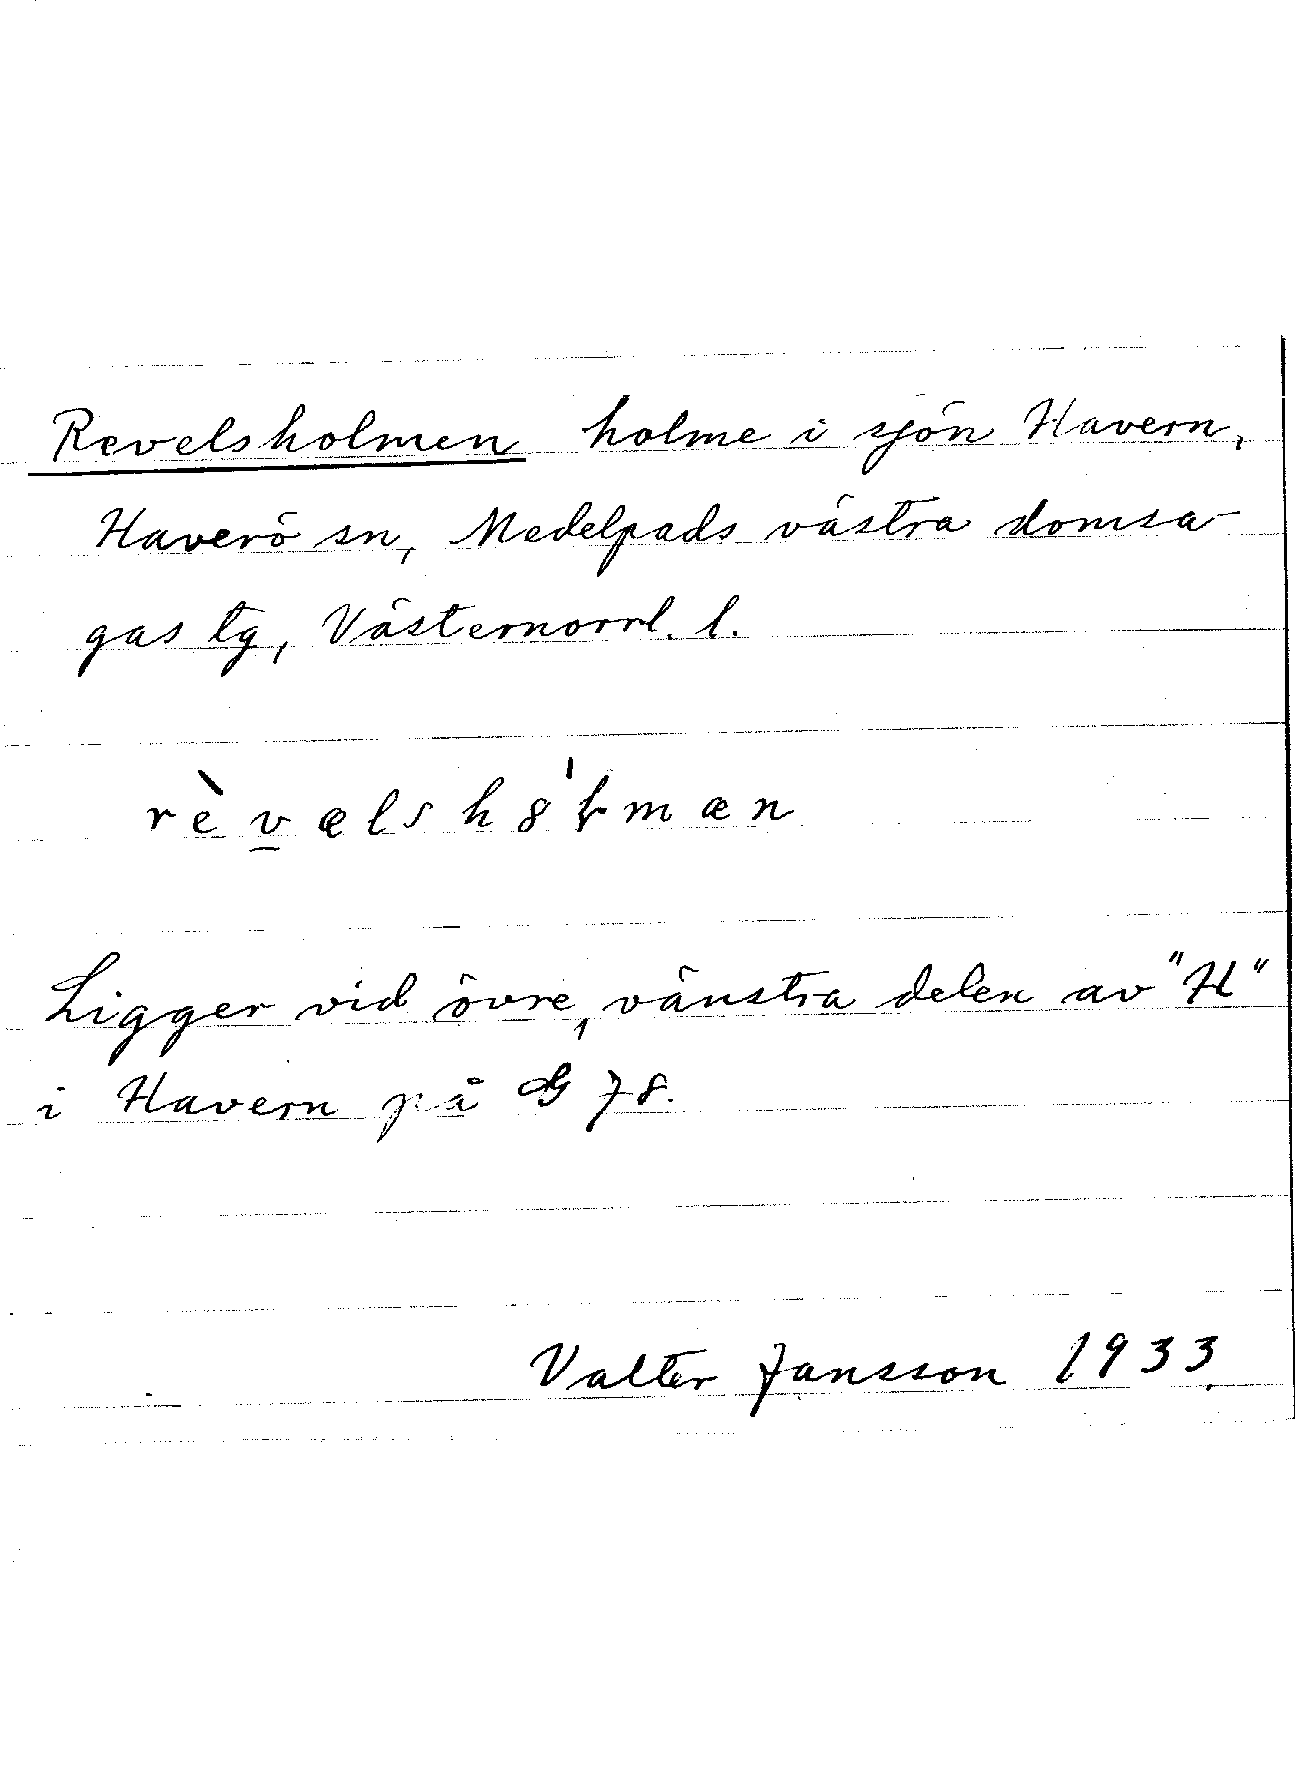 Revelsholmen holme i sjön Havern,
Haverö sn, Medelpads västra domsa-
gas tg, Västernorrl. l.
rèvælsh8'ɫmæn
Ligger vid övre, vänstra delen av "H"
i Havern på G 78.
Valter Jansson 1933.